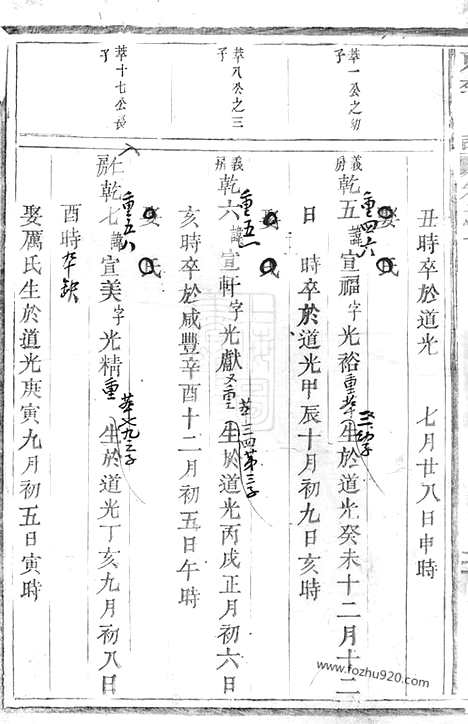 丑時卒於道光 七月廿八日申時
萃一公之幼子
義房乾五諱宣福字光裕生於道光癸未十二月十二
重四六
日 時卒於道光甲辰十月初九日亥時
娶 氏
萃八公之三子
義房乾六諱宣軒字光獻又重生於道光丙戌正月初六日
重五一
萃三四第三子
亥時卒於咸豐辛酉十二月初五日午時
娶 氏
萃十七公長子
仁房乾七諱宣美字光精重生於道光丁亥九月初八日
重五八
萃七九三子
酉時卒缺
娶厲氏生於道光庚寅九月初五日寅時
www.fozhu920.com